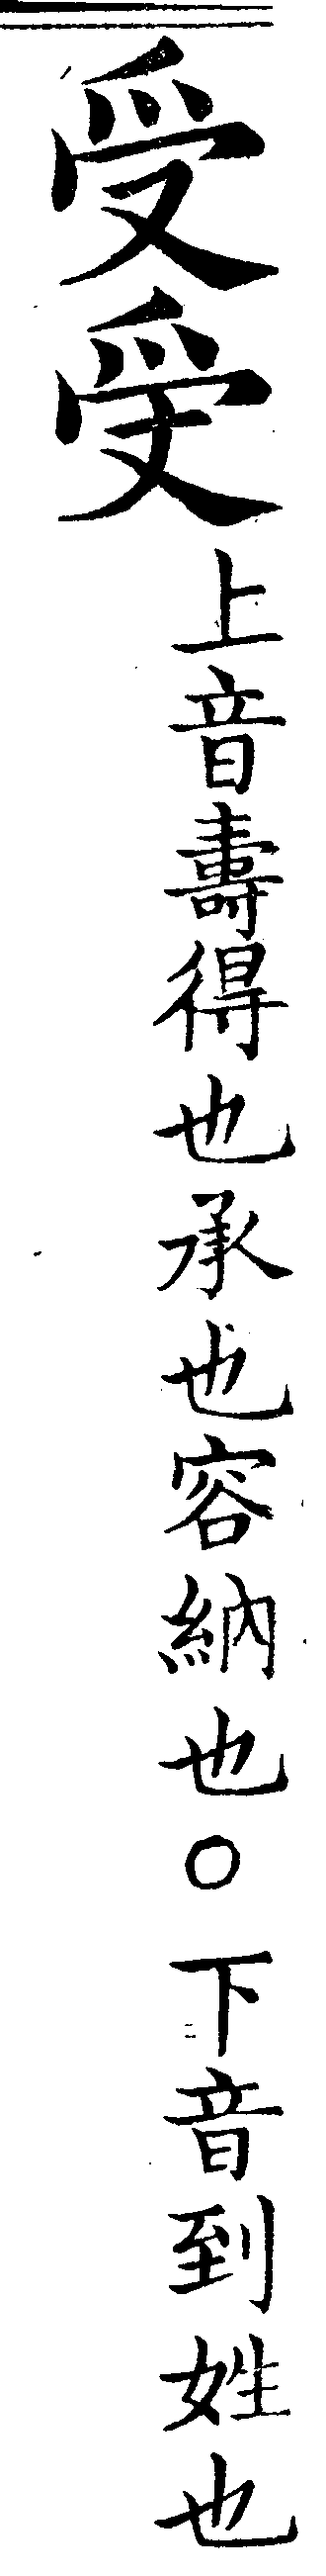 受
上音壽得也承也容納也○下音到姓也